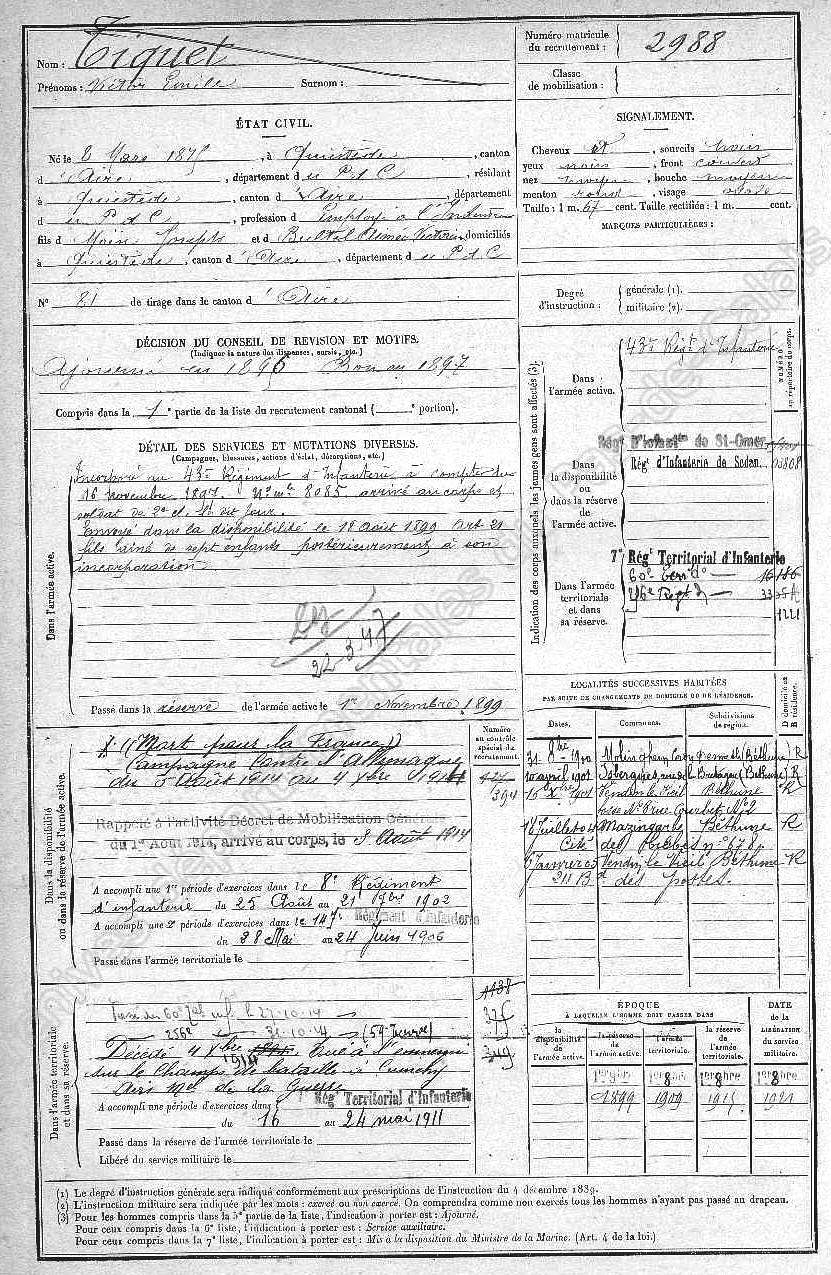 Nom : Tiquet
Prénoms : Victor Emile Surnom :
Numéro matricule du recrutement : 2988
Classe de mobilisation :
ÉTAT CIVIL.
Né le 8 Mars 1875, à Quiestède, canton
d'Aire, département du P d C, résidant
à Quiestède, canton d'Aire, département
du P d C, profession d'Employé à l'
fils d Joseph et d Victorine domiciliés
à Quiestède, canton d'Aire, département du P d C
N° 21 de tirage dans le canton d'Aire
SIGNALEMENT.
Cheveux et, sourcils noirs
yeux noirs, front couvert
nez moyen, bouche moyenne
menton rond, visage ovale
Taille : 1 m. 67 cent. Taille rectifiée : 1 m. cent.
MARQUES PARTICULIÈRES :
Degré d'instruction : générale (1).
militaire (2).
DÉCISION DU CONSEIL DE REVISION ET MOTIFS.
(Indiquer la nature des dispenses, sursis, etc.)
Ajourné en 1896 Bon en 1897
Compris dans la 1e partie de la liste du recrutement cantonal ( portion).
DÉTAIL DES SERVICES ET MUTATIONS DIVERSES.
(Campagnes, blessures, actions d'éclat, décorations, etc.)
Dans l'armée active.
Incorporé au 43e Régiment d'Infanterie à compter du
16 novembre 1897. N° mle 8085 arrivé au corps et
soldat de 2e cl. le dit jour.
Envoyé dans la disponibilité le 18 août 1899 Art 21
fils ainé de sept enfants postérieurement à son
incorporation
22.3.47
Passé dans la réserve de l'armée active le 1er Novembre 1899
Indication des corps auxquels les jeunes gens sont affectés (3).
NUMÉRO au répertoire du corps.
Dans l'armée active.
43e Régt d'Infanterie
Dans la disponibilité ou dans la réserve de l'armée active.
Régt d'Infatie de St-Omer
Régt d'Infanterie de Sedan. 03808
Dans l'armée territoriale et dans sa réserve.
7e Régt Territorial d'Infanterie
60e Terri d° 16186
1221
LOCALITÉS SUCCESSIVES HABITÉES
PAR SUITE DE CHANGEMENTS DE DOMICILE OU DE RÉSIDENCE.
Dates. Communes. Subdivisions de région. D domicile et R résidence.
31 8bre 1900 (Béthune) R
10 avril 1901 Isbergues, rue de la Bretagne (Béthune) R
Vendin le Vieil Béthune R
18 Juillet 04 Mazingarbe Béthune R
Cité des n° 678
Vendin le Vieil Béthune R
211 Bd des postes.
Dans la disponibilité ou dans la réserve de l'armée active.
Numéro au contrôle spécial du recrutement.
394
(Mort pour la France)
Campagne Contre l'Allemagne
du 3 Août 1914 au 4 Xbre 1914
Rappelé à l'activité Décret de Mobilisation Générale
du 1er Août 1914, arrivé au corps, le 3 Août 1914
A accompli une 1re période d'exercices dans le 8e Régiment
d'infanterie du 25 Août au 21 7bre 1902
A accompli une 2e période d'exercices dans le 147e Régiment d'Infanterie
du 28 Mai au 24 Juin 1906
Passé dans l'armée territoriale le
Dans l'armée territoriale et dans sa réserve.
1138
349
Passé au 60e le 27.10.14
256e 31.10.14
Décédé 4 Xbre 1914 tué à l'ennemi
sur le Champ de bataille à Cuinchy
Avis Mel de la Guerre
A accompli une période d'exercices dans 7e Régt Territorial d'Infanterie
du 16 au 24 mai 1911
Passé dans la réserve de l'armée territoriale le
Libéré du service militaire le
ÉPOQUE
À LAQUELLE L'HOMME DOIT PASSER DANS
la disponibilité de l'armée active. la réserve de l'armée active. l'armée territoriale. la réserve de l'armée territoriale.
DATE de la LIBÉRATION du service militaire.
1899 1909 1915 1921
(1) Le degré d'instruction générale sera indiqué conformément aux prescriptions de l'instruction du 4 décembre 1889.
(2) L'instruction militaire sera indiquée par les mots : exercé ou non exercé. On comprendra comme non exercés tous les hommes n'ayant pas passé au drapeau.
(3) Pour les hommes compris dans la 5e partie de la liste, l'indication à porter est : Ajourné.
Pour ceux compris dans la 6e liste, l'indication à porter est : Service auxiliaire.
Pour ceux compris dans la 7e liste, l'indication à porter est : Mis à la disposition du Ministre de la Marine. (Art. 4 de la loi.)